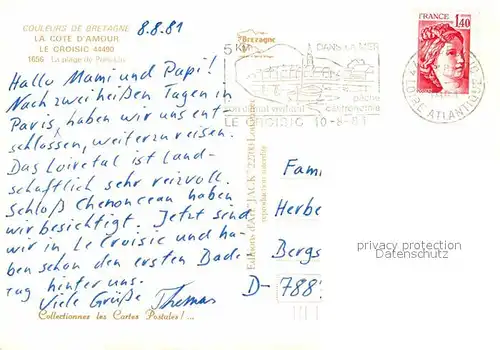 COULEURS DE BRETAGNE
LA COTE D'AMOUR
LE CROISIC 44490
1656 - La plage de
8.8.81
Hallo Mami und Papi!
Nach zwei heißen Tagen in
Paris, haben wir uns ent-
schlossen, weiterzureisen.
Das Loiretal ist land-
schaftlich sehr reizvoll.
Schloß Chenonceau haben
wir besichtigt. Jetzt sind
wir in Le Croisic und ha-
ben schon den ersten Bade
tag hinter uns.
Viele Grüße Thomas
Collectionnez les Cartes Postales! ...
Editions d'Art "JACK" 22700
reproduction interdite
Bretagne
5 KM DANS LA MER
pêche
LE CROISIC 10-8-81
FRANCE
1,40
LOIRE ATLANTIQUE
Fam
Herbe
Bergs
D-788
privacy protection
Datenschutz